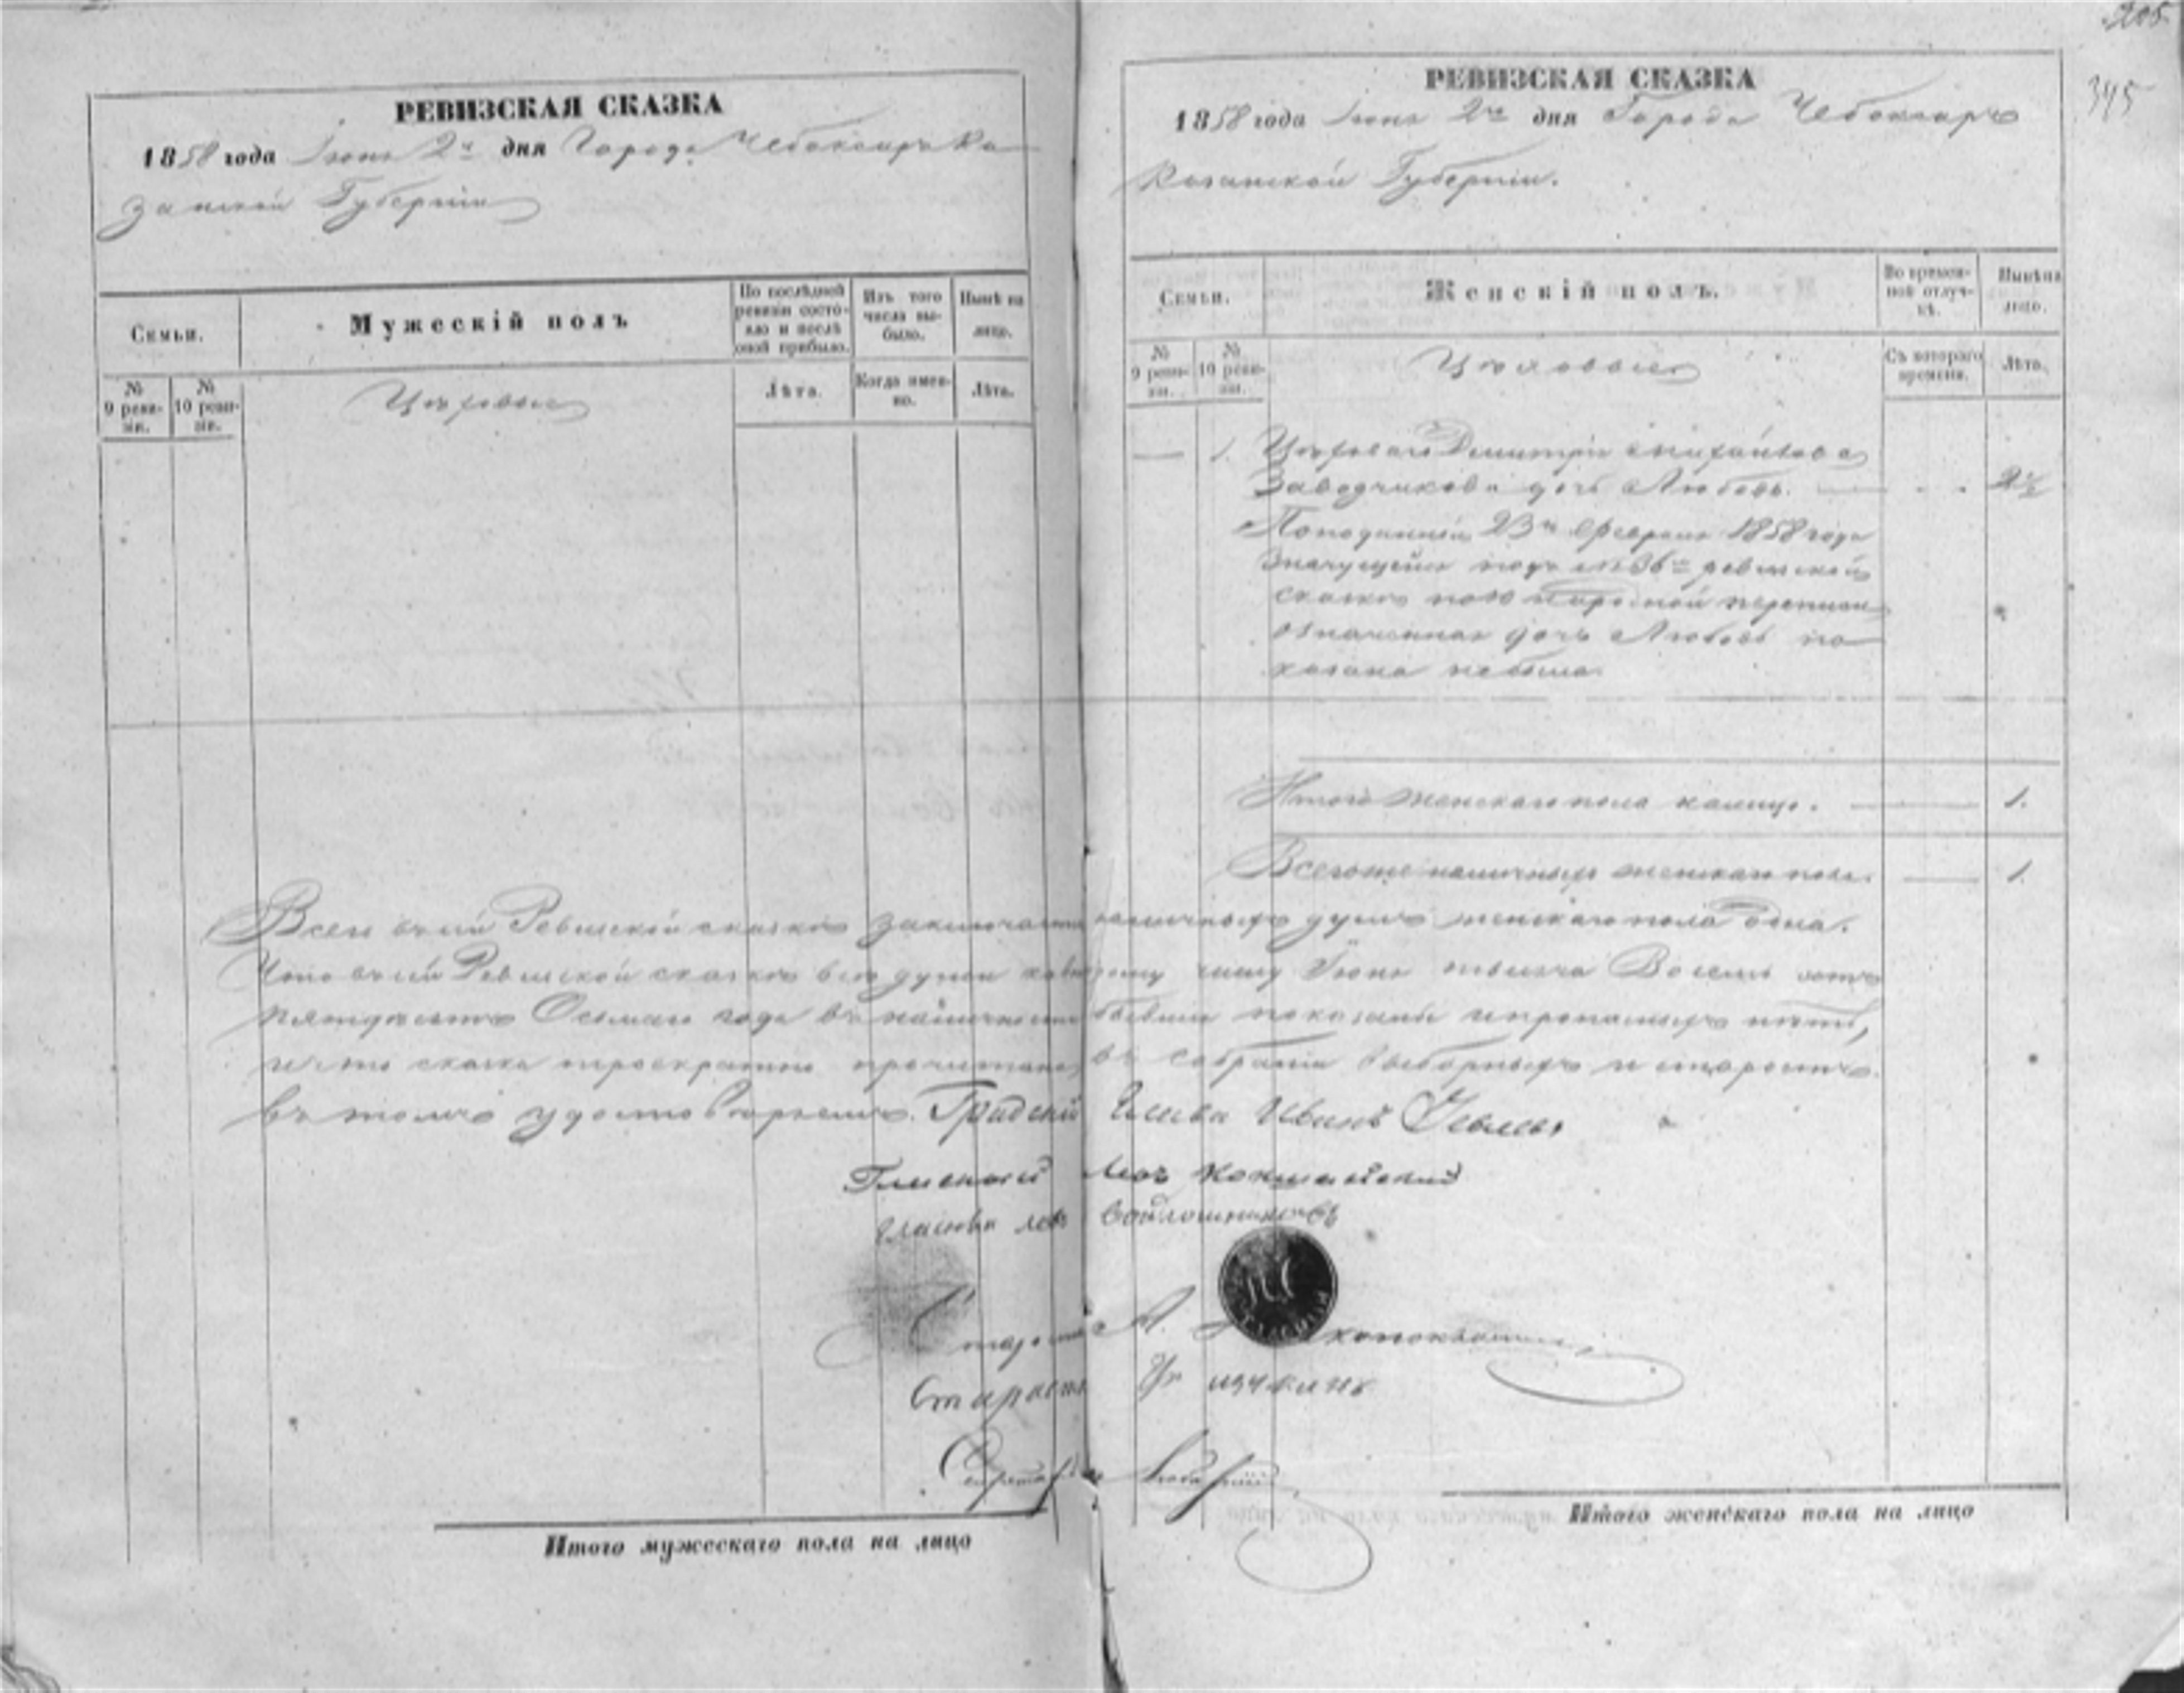 205.
345
РЕВИЗСКАЯ СКАЗКА
1858 года Іюня 2го дня Города Чебоксаръ Ка
занской Губерніи
Семьи.
Мужескій полъ
По послѣдней ревизіи состояло и послѣ оной прибыло.
Изъ того числа выбыло.
Нынѣ на лицо.
№ 9 ревизіи.
№ 10 ревизіи.
Цѣховые
Лѣта.
Когда именно.
Лѣта.
РЕВИЗСКАЯ СКАЗКА
1858 года Іюня 2го дня Города Чебоксаръ
Казанской Губерніи.
Семьи.
Женскій полъ.
Во временной отлучкѣ.
Нынѣ на лицо.
№ 9 ревизіи.
№ 10 ревизіи.
Цѣховые
Съ котораго времени.
Лѣта.
1. Цѣховаго Димитрія Михайлова
Заводчикова дочь Любовь.
Поподанной 23го Февраля 1858 года
Значущейся подъ №36м ревизской
сказкѣ по народной переписи
означенная дочь Любовь по
казана небыла.
Итого женскаго пола налицо. 1.
Всегоже наличныхъ женскаго пола. 1.
Всего въ сей Ревизской сказкѣ заключается наличныхъ душъ женскаго пола одна.
Что въ сей Ревизской сказкѣ всѣ души ко второму числу Іюня тысяча Восемь сотъ
пятдесятъ Осьмаго года въ наличности бывшія показаны и прописныхъ нѣтъ,
и что сказка троекратно прочитана въ собраніи выборныхъ и старостъ
въ томъ удостовѣряемъ. Градской Глава Иванъ
Гласной
Гласный Войлошниковъ
Староста А.
Староста
Секретарь
Итого мужескаго пола на лицо
Итого женскаго пола на лицо